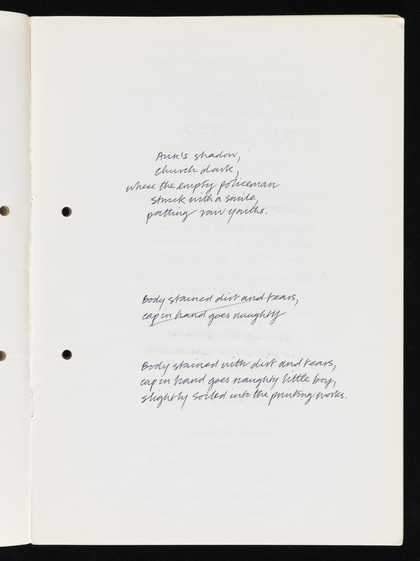 Ann's shadow,
church dark,
where the empty policeman
struck with a smile,
patting raw youths.
Body stained dirt and tears,
cap in hand goes naughty
Body stained with dirt and tears,
cap in hand goes naughty little boy,
slightly soiled into the printing works.